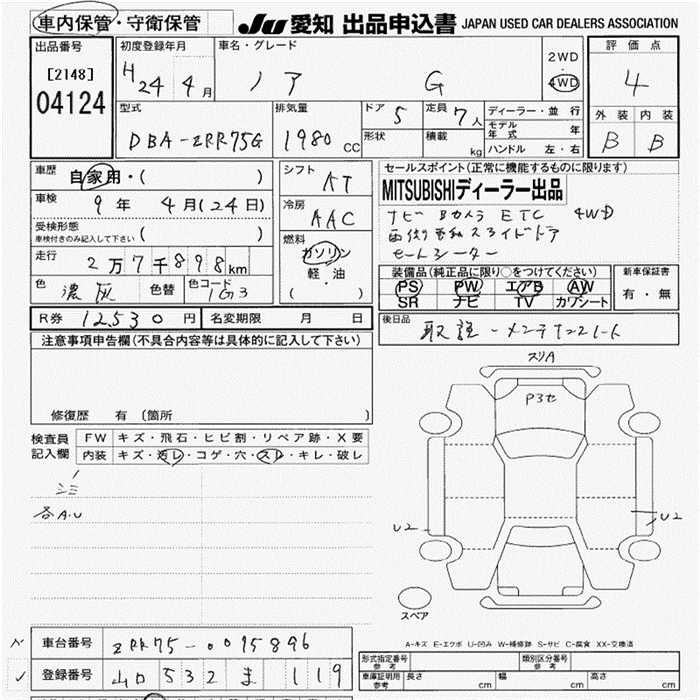 車内保管・守衛保管
JU 愛知 出品申込書 JAPAN USED CAR DEALERS ASSOCIATION
出品番号
[2148]
04124
初度登録年月
H24年4月
車名・グレード
ノア G
2WD
・
4WD
評価点
4
外装 内装
B B
型式
DBA-ZRR75G
排気量
1980 CC
ドア 5
形状
定員 7人
積載 kg
ディーラー・並行
モデル年式 年
ハンドル 左・右
車歴 自家用・( )
車検 9年 4月(24日)
受検形態
車検付きのみ記入して下さい ( )
走行 2万7千898km
色 濃灰 色替 色コード 1G3
シフト AT
冷房 AAC
燃料
ガソリン
軽・油
( )
セールスポイント(正常に機能するものに限ります)
MITSUBISHIディーラー出品
ナビ Bカメラ ETC 4WD
両側電動スライドドア
セートヒーター
装備品(純正品に限り○をつけてください)
PS PW エアB AW
SR ナビ TV カワシート
新車保証書
有・無
R券 12530円 名変期限 月 日
後日品 取説-メンテナンスノート
注意事項申告欄(不具合内容等は具体的に記入して下さい)
修復歴 有 〔箇所 〕
検査員記入欄
FW キズ・飛石・ヒビ割・リペア跡・X要
内装 キズ・汚レ・コゲ・穴・スレ・キレ・破レ
シミ
各A.U
スリA
P3セ
U2
U2
スペア
A-キズ E-エクボ U-凹み W-補修跡 S-サビ C-腐食 XX-交換済
車台番号 ZRR75-0095896
登録番号 山口 532 ま 119
形式指定番号 参考
類別区分番号 参考
車庫証明用参考 長さ cm 幅 cm 高さ cm